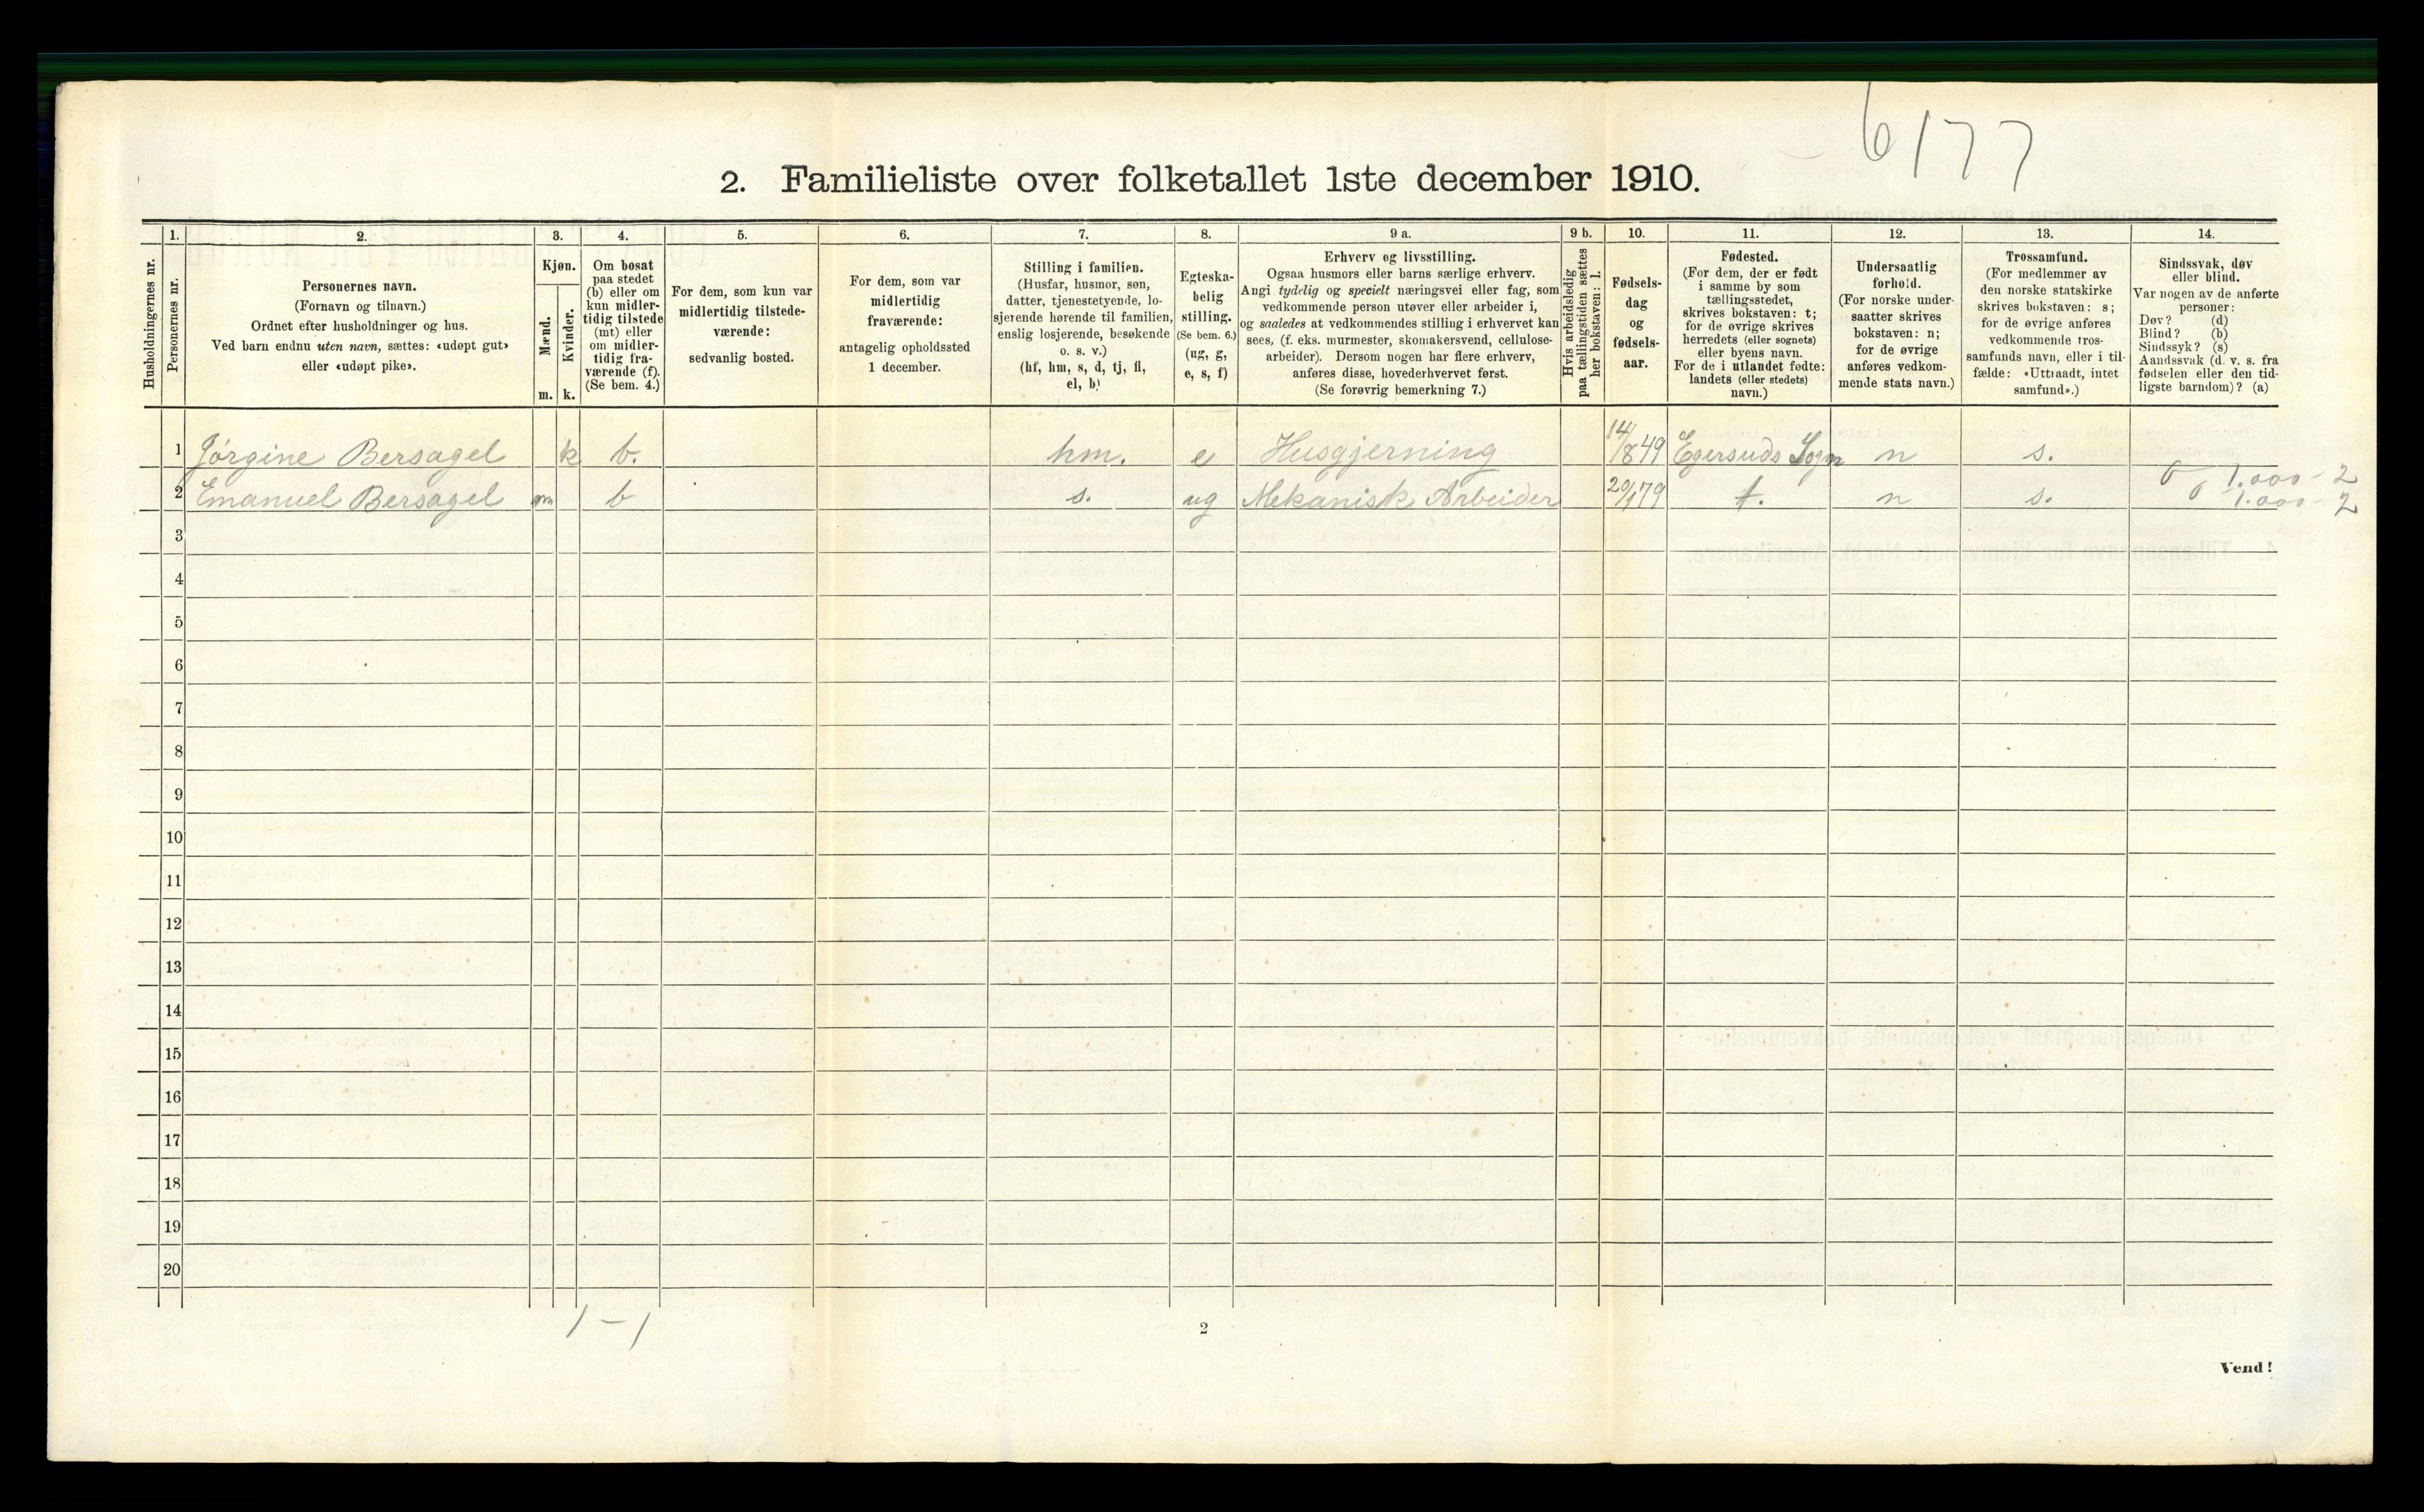 6177
2. Familieliste over folketallet 1ste december 1910.
Husholdningernes nr.
1.
Personernes nr.
2.
Personernes navn.
(Fornavn og tilnavn.)
Ordnet efter husholdninger og hus.
Ved barn endnu uten navn, sættes: «udøpt gut»
eller «udøpt pike».
3.
Kjøn.
Mænd.
m.
Kvinder.
k.
4.
Om bosat
paa stedet
(b) eller om
kun midler-
tidig tilstede
(mt) eller
om midler-
tidig fra-
værende (f).
(Se bem. 4.)
5.
For dem, som kun var
midlertidig tilstede-
værende:
sedvanlig bosted.
6.
For dem, som var
midlertidig
fraværende:
antagelig opholdssted
1 december.
7.
Stilling i familien.
(Husfar, husmor, søn,
datter, tjenestetyende, lo-
sjerende hørende til familien,
enslig losjerende, besøkende
o. s. v.)
(hf, hm, s, d, tj, fl,
el, b)
8.
Egteska-
belig
stilling.
(Se bem. 6.)
(ug, g,
e, s, f)
9 a.
Erhverv og livsstilling.
Ogsaa husmors eller barns særlige erhverv.
Angi tydelig og specielt næringsvei eller fag, som
vedkommende person utøver eller arbeider i,
og saaledes at vedkommendes stilling i erhvervet kan
sees, (f. eks. murmester, skomakersvend, cellulose-
arbeider). Dersom nogen har flere erhverv,
anføres disse, hovederhvervet først.
(Se forøvrig bemerkning 7.)
9 b.
Hvis arbeidsledig
paa tællingstiden sættes
her bokstaven: l.
10.
Fødsels-
dag
og
fødsels-
aar.
11.
Fødested.
(For dem, der er født
i samme by som
tællingsstedet,
skrives bokstaven: t;
for de øvrige skrives
herredets (eller sognets)
eller byens navn.
For de i utlandet fødte:
landets (eller stedets)
navn.)
12.
Undersaatlig
forhold.
(For norske under-
saatter skrives
bokstaven: n;
for de øvrige
anføres vedkom-
mende stats navn.)
13.
Trossamfund.
(For medlemmer av
den norske statskirke
skrives bokstaven: s;
for de øvrige anføres
vedkommende tros-
samfunds navn, eller i til-
fælde: «Uttraadt, intet
samfund».)
14.
Sindssvak, døv
eller blind.
Var nogen av de anførte
personer:
Døv? (d)
Blind? (b)
Sindssyk? (s)
Aandssvak (d. v. s. fra
fødselen eller den tid-
ligste barndom)? (a)
1 Jørgine Bersagel k b. hm. e Husgjerning 14/849 Egersuds Sogn n s. 0 1.000 - 2
2 Emanuel Bersagel m b s. ug Mekanisk Arbeider 20/179 t. n s. 0 1.000 - 2
3
4
5
6
7
8
9
10
11
12
13
14
15
16
17
18
19
20
1 - 1
2
Vend!